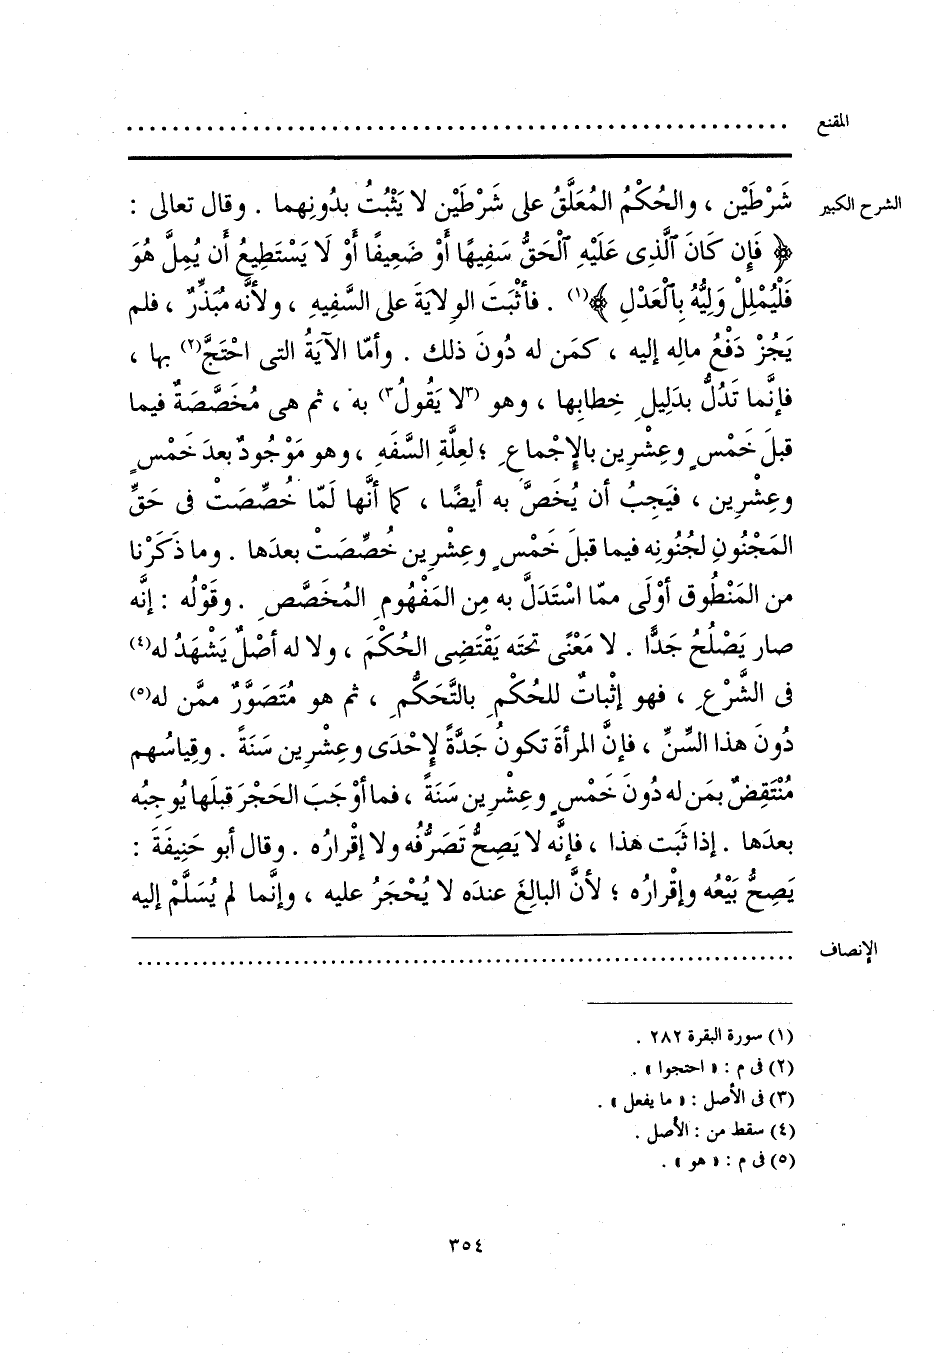 المقنع ................................................
الشرح الكبير شَرْطَيْن ، والحُكْمُ المُعَلَّقُ على شَرْطَيْن لا يَثْبُتُ بدُونِهما . وقال تعالى :
﴿ فَإِن كَانَ ٱلَّذِى عَلَيْهِ ٱلْحَقُّ سَفِيهًا أَوْ ضَعِيفًا أَوْ لَا يَسْتَطِيعُ أَن يُمِلَّ هُوَ
فَلْيُمْلِلْ وَلِيُّهُ بِٱلْعَدْلِ ﴾(١) . فأثْبَتَ الوِلايَةَ على السَّفِيهِ ، ولأنَّه مُبَذِّرٌ ، فلم
يَجُزْ دَفْعُ مالِه إليه ، كمَن له دُونَ ذلك . وأمّا الآيَةُ التى احْتَجَّ(٢) بها ،
فإنَّما تَدُلُّ بدَلِيلِ خِطابِها ، وهو (٣لا يَقُولُ٣) به ، ثم هى مُخَصَّصَةٌ فيما
قبلَ خَمْسٍ وعِشْرِين بالإِجْماعِ ؛ لعِلَّةِ السَّفَهِ ، وهو مَوْجُودٌ بعدَ خَمْسٍ
وعِشْرِين ، فيَجِبُ أن يُخَصَّ به أيضًا ، كما أنَّها لَمّا خُصِّصَتْ فى حَقِّ
المَجْنُونِ لجُنُونِه فيما قبلَ خَمْسٍ وعِشْرِين خُصِّصَتْ بعدَها . وما ذَكَرْنا
من المَنْطُوقِ أوْلَى ممّا اسْتَدَلَّ به مِن المَفْهُومِ المُخَصَّصِ . وقَوْلُه : إنَّه
صار يَصْلُحُ جَدًّا . لا مَعْنًى تحتَه يَقْتَضِى الحُكْمَ ، ولا له أصْلٌ يَشْهَدُ له(٤)
فى الشَّرْعِ ، فهو إثْباتٌ للحُكْمِ بالتَّحَكُّمِ ، ثم هو مُتَصَوَّرٌ ممَّن له(٥)
دُونَ هذا السِّنِّ ، فإنَّ المرأةَ تكونُ جَدَّةً لإِحْدَى وعِشْرِين سَنَةً . وقِياسُهم
مُنْتَقِضٌ بمَن له دُونَ خَمْسٍ وعِشْرِين سَنَةً ، فما أوْجَبَ الحَجْرَ قبلَها يُوجِبُه
بعدَها . إذا ثَبَت هذا ، فإنَّه لا يَصِحُّ تَصَرُّفُه ولا إقْرارُه . وقال أبو حَنِيفَةَ :
يَصِحُّ بَيْعُه وإقْرارُه ؛ لأنَّ البالِغَ عندَه لا يُحْجَرُ عليه ، وإنَّما لم يُسَلَّمْ إليه
الإنصاف ................................................
(١) سورة البقرة ٢٨٢ .
(٢) فى م : « احتجوا » .
(٣) فى الأصل : « ما يفعل » .
(٤) سقط من : الأصل .
(٥) فى م : « هو » .
٣٥٤